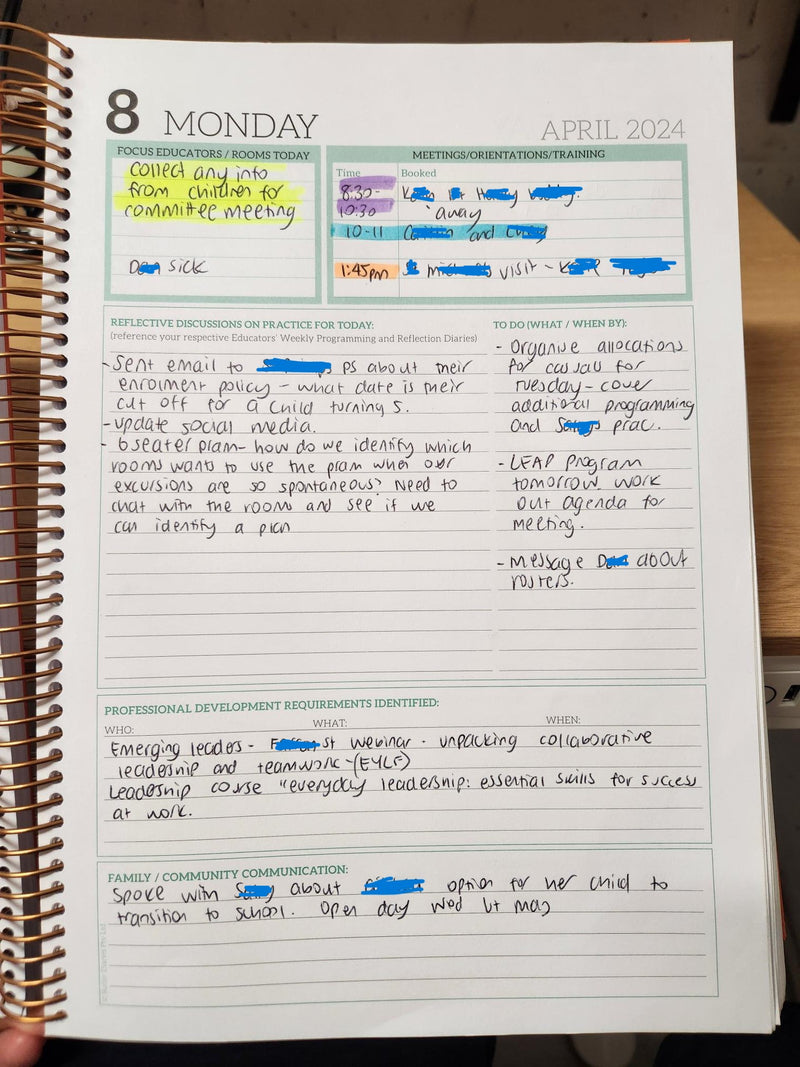 8 MONDAY
APRIL 2024
FOCUS EDUCATORS / ROOMS TODAY
collect any info
from children for
committee meeting
sick
MEETINGS/ORIENTATIONS/TRAINING
Time Booked
8:30-
10:30 away
10-11 and
1:45pm visit -
REFLECTIVE DISCUSSIONS ON PRACTICE FOR TODAY:
(reference your respective Educators' Weekly Programming and Reflection Diaries)
- Sent email to PS about their
enrolment policy - what date is their
cut off for a child turning 5.
- update social media.
- 6 seater pram - how do we identify which
rooms wants to use the pram when our
excursions are so spontaneous? Need to
chat with the rooms and see if we
can identify a plan
TO DO (WHAT / WHEN BY):
- Organise allocations
for casual for
Tuesday - cover
additional programming
and prac.
- LEAP Program
tomorrow. work
out agenda for
meeting.
- Message about
rosters.
PROFESSIONAL DEVELOPMENT REQUIREMENTS IDENTIFIED:
WHO: WHAT: WHEN:
Emerging leaders - st webinar - unpacking collaborative
leadership and teamwork - (EYLF)
Leadership course "everyday leadership: essential skills for success
at work.
FAMILY / COMMUNITY COMMUNICATION:
Spoke with about option for her child to
transition to school. Open day Wed